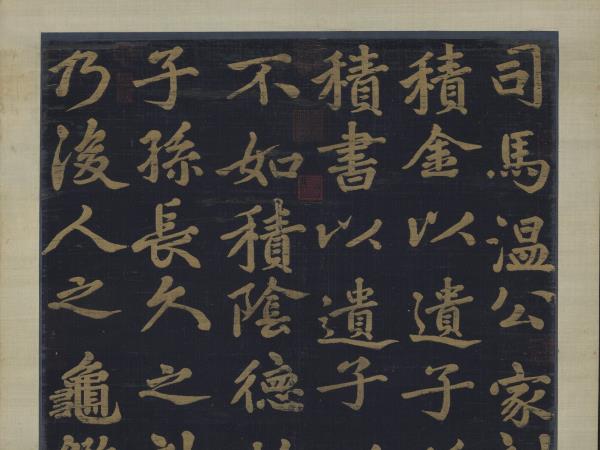 司馬温公家
積金以遺子
積書以遺子
不如積陰德
子孫長久之
乃後人之龜